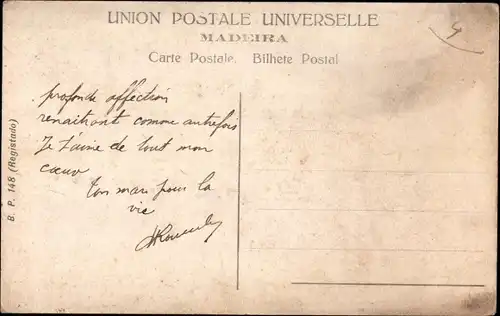 UNION POSTALE UNIVERSELLE
MADEIRA
Carte Postale. Bilhete Postal
B. P. 148 (Registado)
profonde affection
renaitront comme autrefois
Je t'aime de tout mon
cœur
ton mari pour la
vie